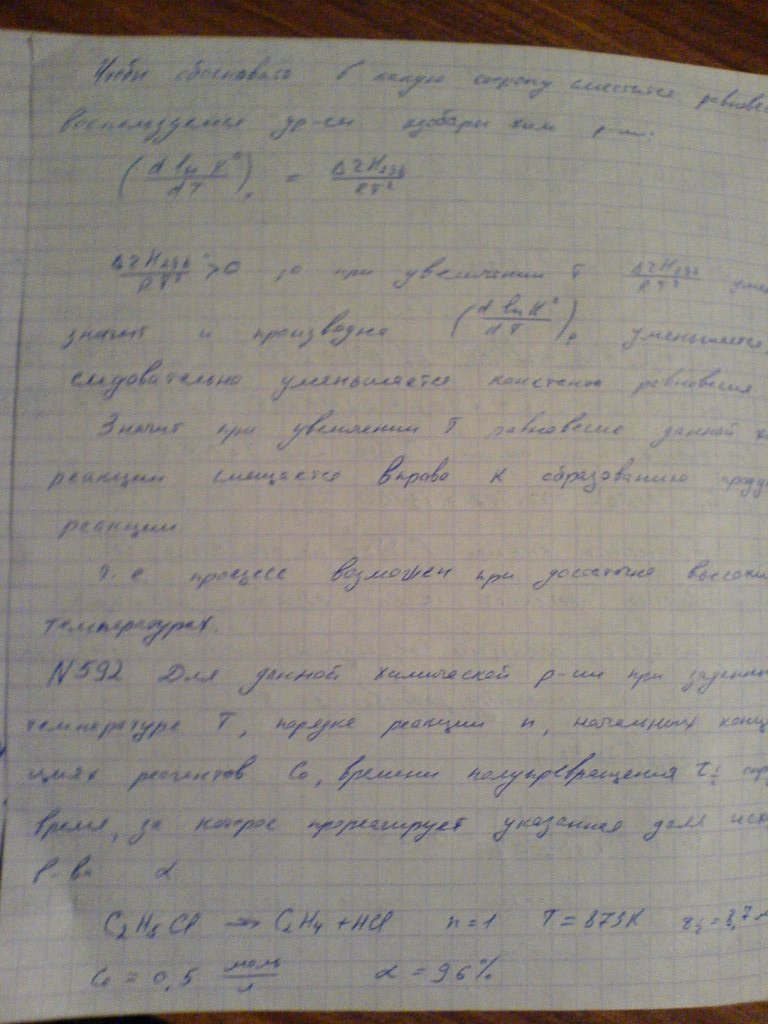 Чтобы обосновать в какую сторону сместится равновес
воспользуемся ур-ем изобары хим р-ии:
(d ln K⁰/dT)ₚ = ΔrH298/RT²
ΔrH298/RT² > 0, то при увеличении T ΔrH298/RT² умен
значит и производна (d ln K⁰/dT)ₚ уменьшается,
следовательно уменьшается константа равновесия
Значит при увеличении T равновесие данной
реакции смещается вправо к образованию проду
реакции.
т. е. процесс возможен при достаточно высоки
температурах.
N592 Для данной химической р-ии при заданн
температуре T, порядке реакции n, начальных конц
циях реагентов C₀, времени полупревращения τ½
время, за которое прореагирует указанная доля исх
в-ва α
C₂H₅Cl → C₂H₄ + HCl n=1 T=873К τ½=8,7
C₀ = 0,5 моль/л α = 96%